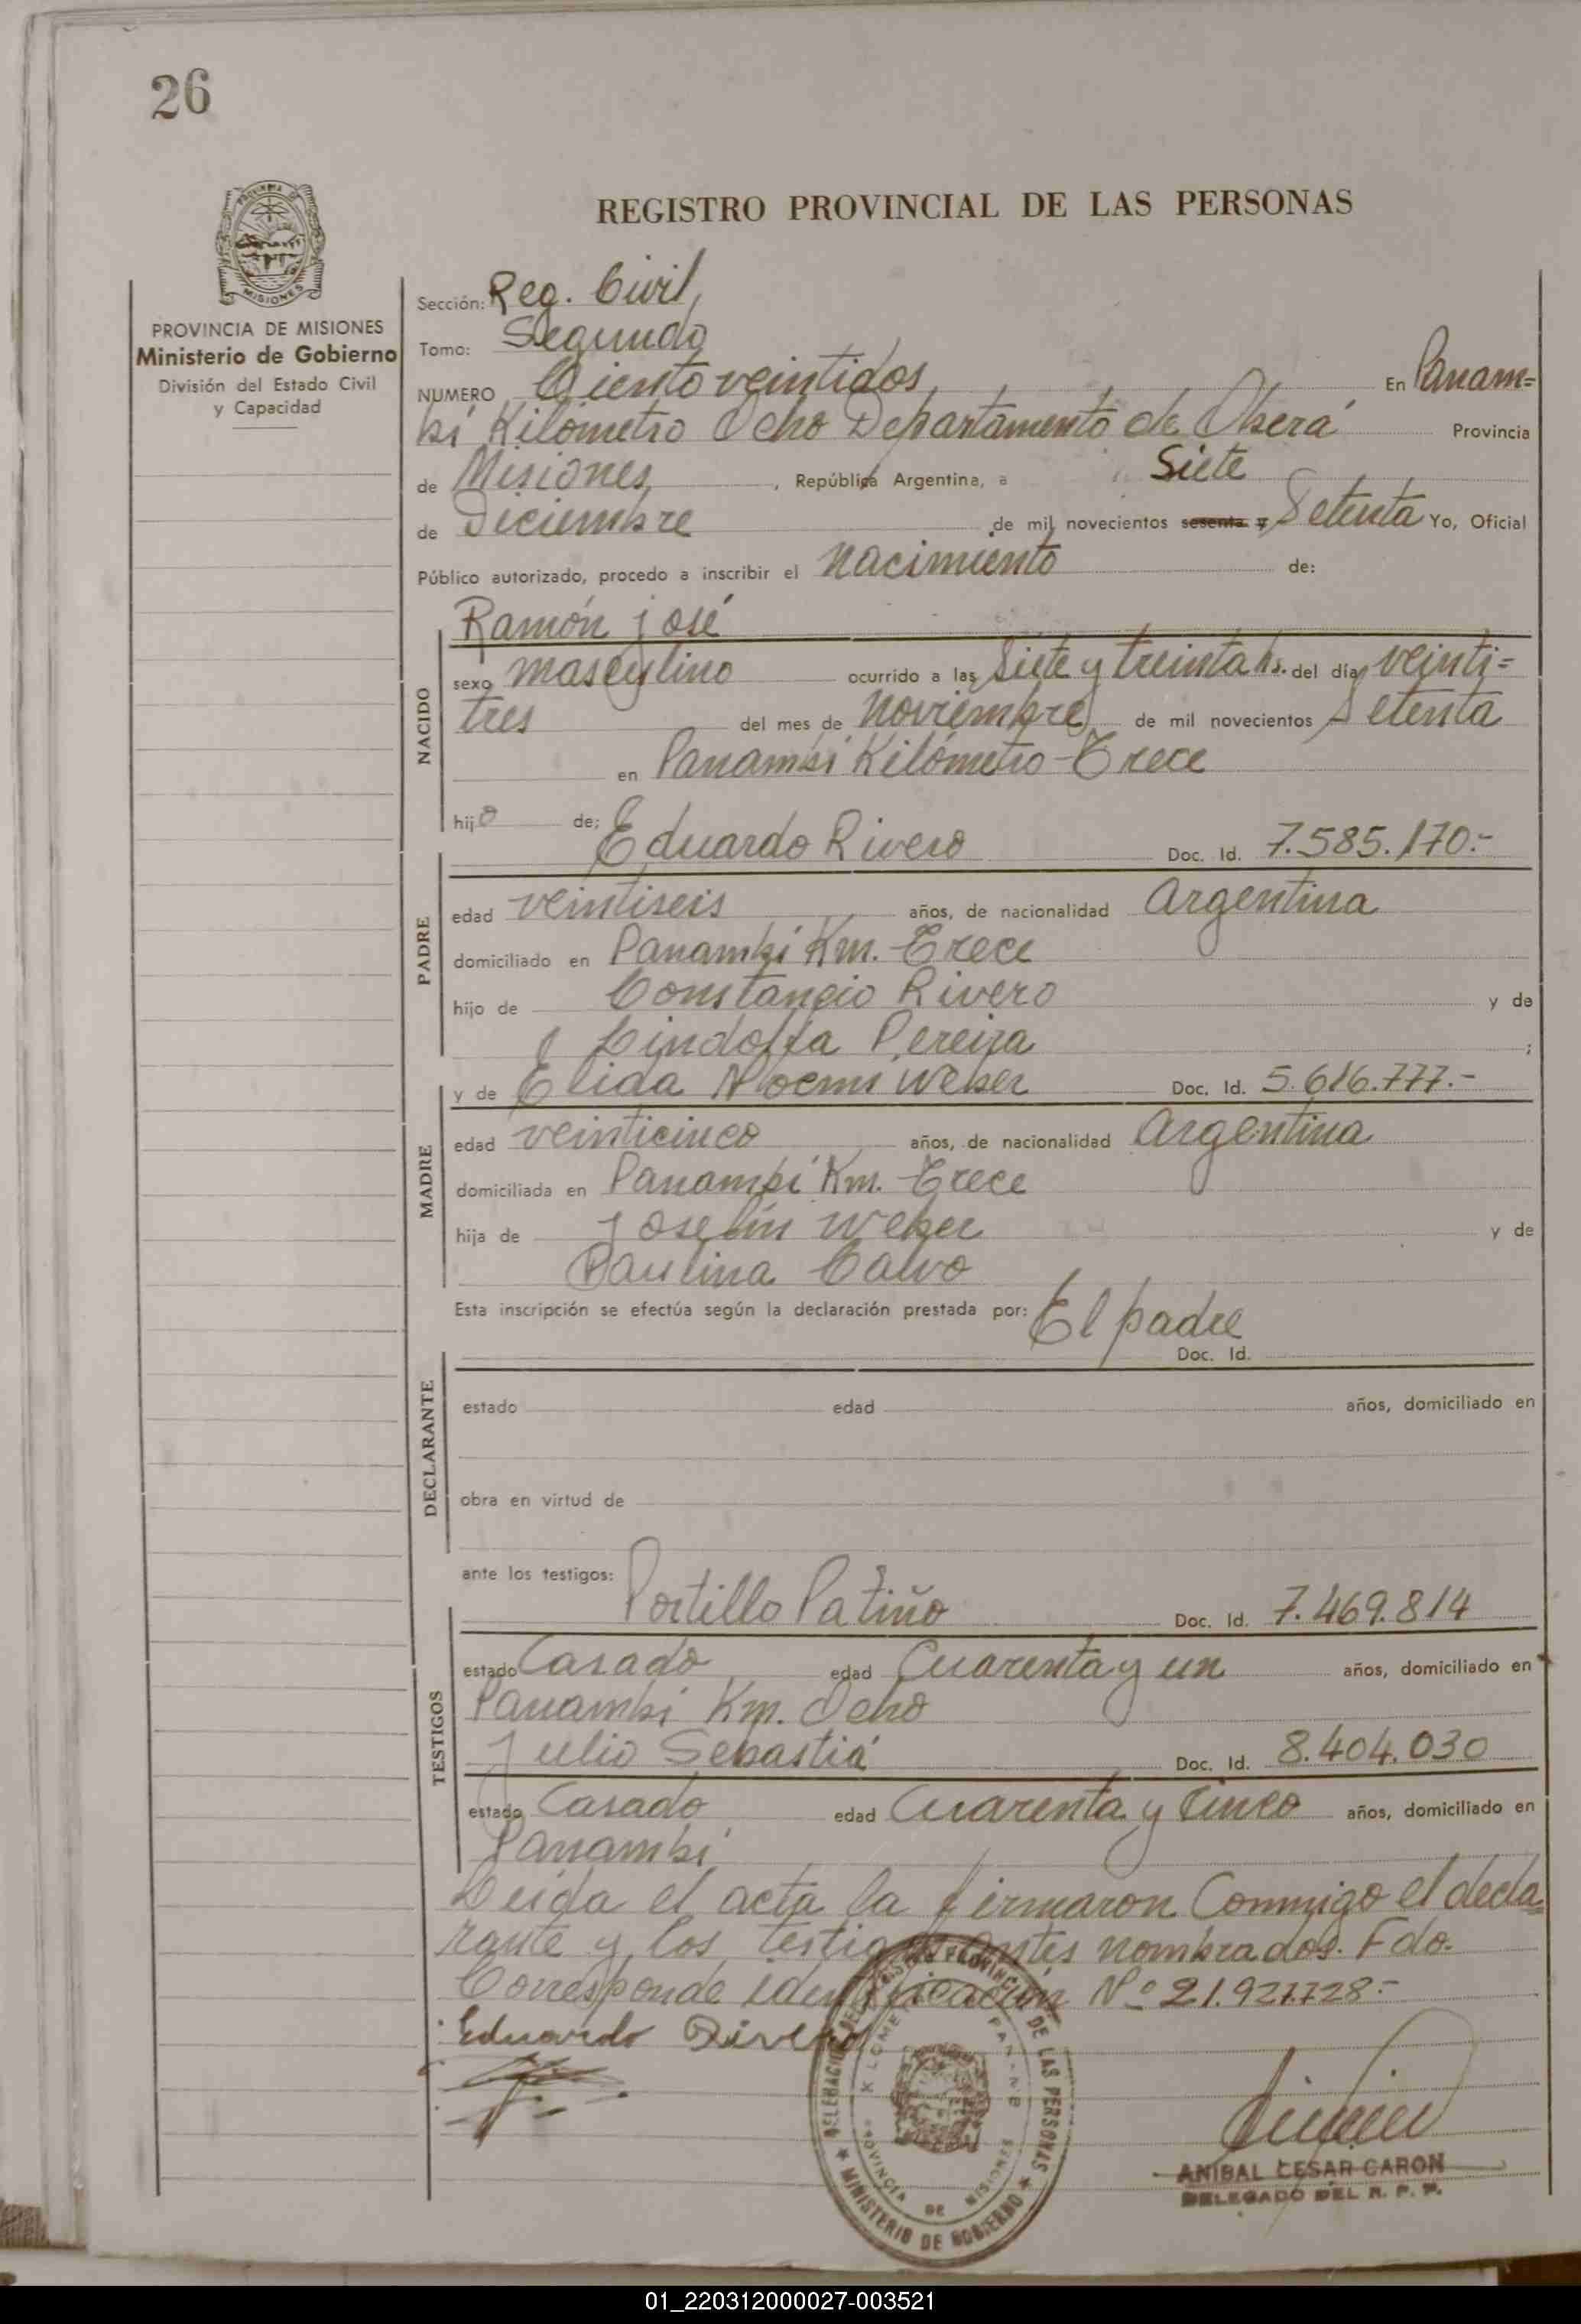 26
REGISTRO PROVINCIAL DE LAS PERSONAS
PROVINCIA DE MISIONES
PROVINCIA DE MISIONES
Ministerio de Gobierno
División del Estado Civil
y Capacidad
Sección: Reg. Civil,
Tomo: Segundo
NUMERO Ciento veintidos, En Panam=
bí Kilómetro Ocho Departamento de Oberá Provincia
de Misiones, República Argentina, a Siete
de Diciembre de mil novecientos sesenta y Setenta Yo, Oficial
Público autorizado, procedo a inscribir el nacimiento de:
Ramón josé
NACIDO
sexo masculino ocurrido a las Siete y treinta hs. del día veinti=
tres del mes de noviembre de mil novecientos Setenta
en Panambí Kilómetro Trece
hijo de; Eduardo Rivero Doc. Id. 7.585.170.-
PADRE
edad veintiseis años, de nacionalidad Argentina
domiciliado en Panambí Km. Trece
hijo de Constancio Rivero y de
Lindolfa Pereira ;
y de Elida Noemi Weber Doc. Id. 5.616.777.-
MADRE
edad veinticinco años, de nacionalidad Argentina
domiciliada en Panambí Km. Trece
hija de Joselín Weber y de
Paulina Calvo
Esta inscripción se efectúa según la declaración prestada por: El padre
Doc. Id.
DECLARANTE
estado edad años, domiciliado en
obra en virtud de
ante los testigos:
Portillo Patiño Doc. Id. 7.469.814
TESTIGOS
estado Casado edad Cuarenta y un años, domiciliado en
Panambí Km. Ocho
Julio Sebastiá Doc. Id. 8.404.030
estado Casado edad Cuarenta y Cinco años, domiciliado en
Panambí
Leida el acta la firmaron Conmigo el decla=
rante y los testigos antes nombrados. Fdo.
Corresponde identificación Nº 21.921.728.-
Eduardo Rivero
DELEGACION DEL REGISTRO PROVINCIAL DE LAS PERSONAS
MINISTERIO DE GOBIERNO
PROVINCIA DE MISIONES
ANIBAL CESAR CARON
DELEGADO DEL R. P. P.
01_220312000027-003521